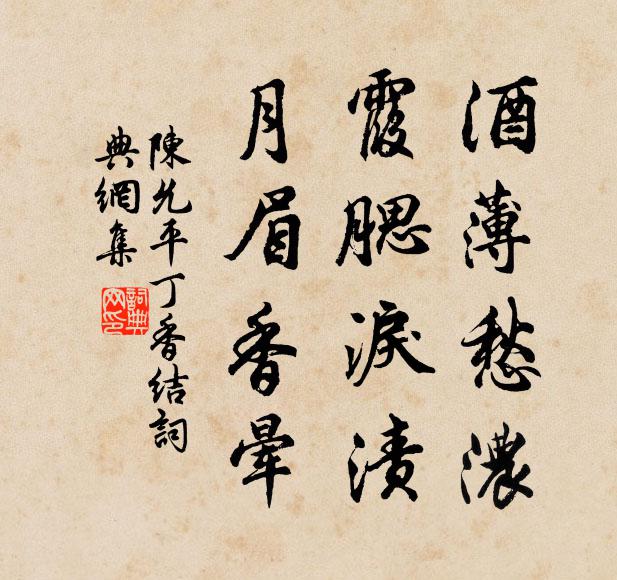 酒薄愁濃
霞腮淚漬
月眉香暈
陳允平丁香結詞
典網集
詞典网印